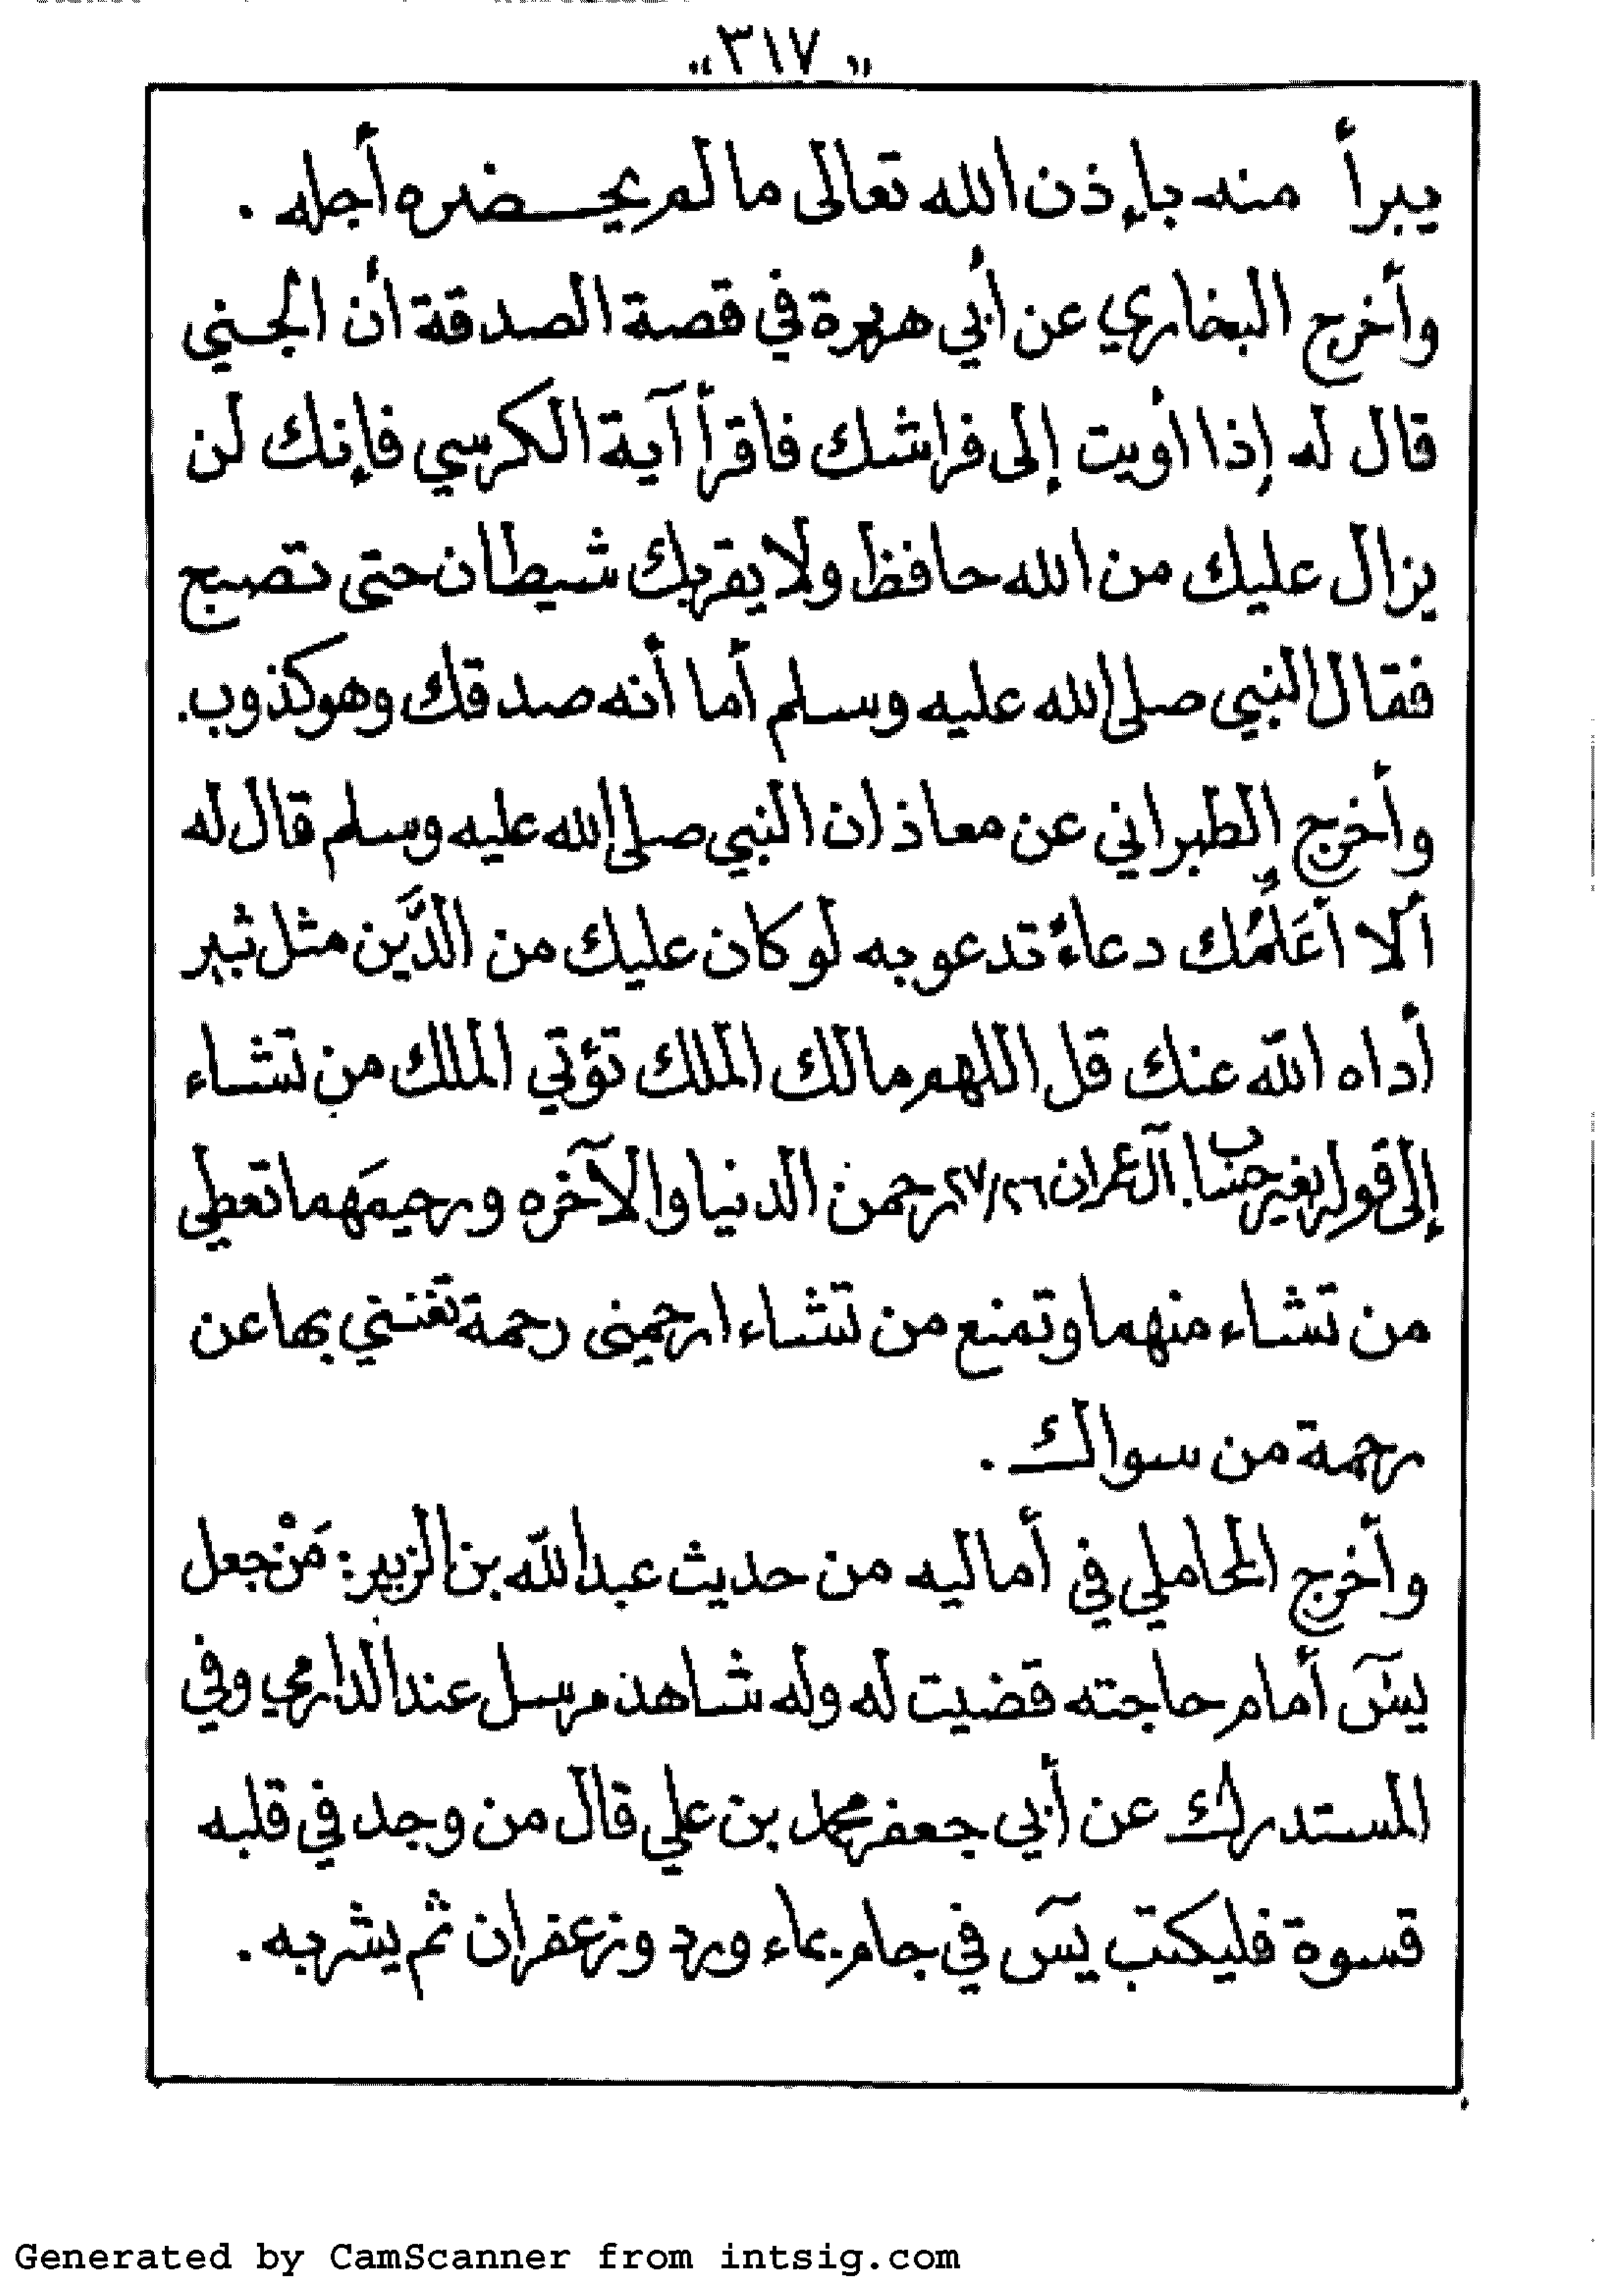 «٣١٧»
يبرأ منه بإذن الله تعالى ما لم يحضره أجله .
وأخرج البخاري عن أبي هريرة في قصة الصدقة أن الجني
قال له إذا أويت إلى فراشك فاقرأ آية الكرسي فإنك لن
يزال عليك من الله حافظ ولا يقربك شيطان حتى تصبح
فقال النبي صلى الله عليه وسلم أما أنه صدقك وهو كذوب.
وأخرج الطبراني عن معاذ ان النبي صلى الله عليه وسلم قال له
ألا أعَلِّمُك دعاءً تدعو به لو كان عليك من الدَّين مثل ثبير
أداه الله عنك قل اللهم مالك الملك تؤتي الملك من تشاء
إلى قوله بغير حساب. آل عمران ٢٦/٢٧ رحمن الدنيا والآخره ورحيمَهما تعطي
من تشاء منهما وتمنع من تشاء ارحمني رحمة تغنني بها عن
رحمة من سواك .
وأخرج المحاملي في أماليه من حديث عبد الله بن الزبير: مَنْ جعل
يسۤ أمام حاجته قضيت له وله شاهد مرسل عند الدارمي وفي
المستدرك عن أبي جعفر محمد بن علي قال من وجد في قلبه
قسوة فليكتب يسۤ في جام بماء ورد وزعفران ثم يشربه .
Generated by CamScanner from intsig.com